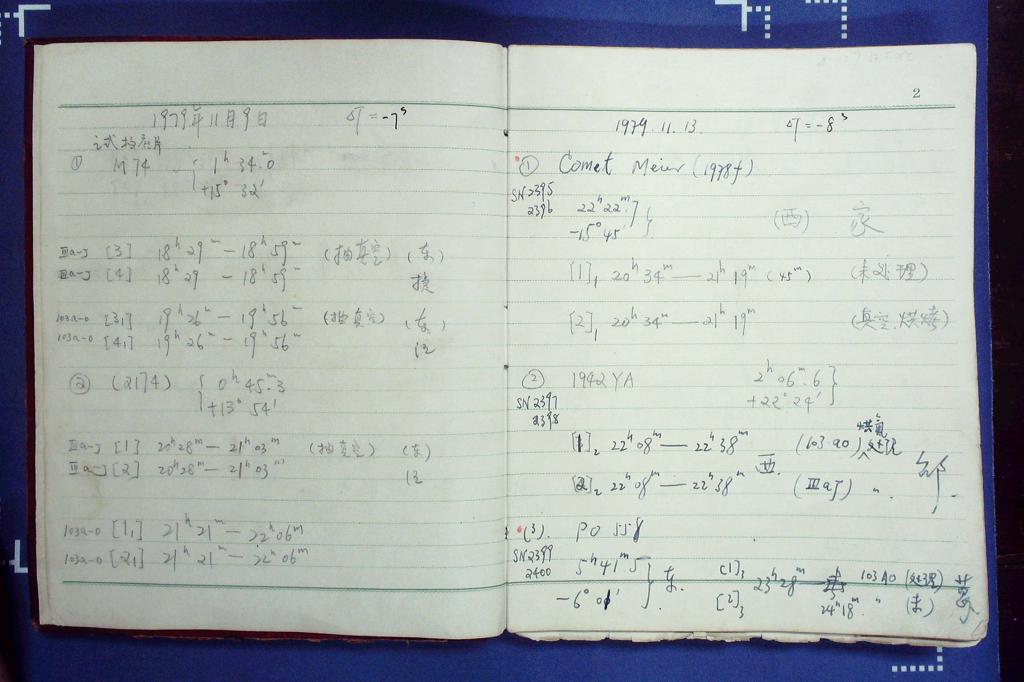 1979年11月9日 δT=-7ˢ
试拍底片
① M74 { 1ʰ 34ᵐ.0
+15° 32′
Ⅲa-J [3] 18ʰ29ᵐ — 18ʰ59ᵐ (抽真空) (东)
Ⅲa-J [4] 18ʰ29 — 18ʰ59ᵐ
103a-O [3₁] 19ʰ26ᵐ — 19ʰ56ᵐ (抽真空) (东)
103a-O [4₁] 19ʰ26ᵐ — 19ʰ56ᵐ
② (2174) { 0ʰ 45ᵐ.3
+13° 54′
Ⅲa-J [1] 20ʰ28ᵐ — 21ʰ03ᵐ (抽真空) (东)
Ⅲa-J [2] 20ʰ28ᵐ — 21ʰ03ᵐ
103a-O [1₁] 21ʰ21ᵐ — 22ʰ06ᵐ
103a-O [2₁] 21ʰ21ᵐ — 22ʰ06ᵐ
2
1979.11.13. δT=-8ˢ
① Comet Meier (1978f)
SN2395
2396
22ʰ22ᵐ.7
-15°45′ } (西) 家
[1]₁ 20ʰ34ᵐ — 21ʰ19ᵐ (45ᵐ) (未处理)
[2]₁ 20ʰ34ᵐ — 21ʰ19ᵐ (真空.烘烤)
② 1942YA 2ʰ06ᵐ.6
+22°24′ }
SN2397
2398
[1]₂ 22ʰ08ᵐ — 22ʰ38ᵐ 西. (103aO) 烘氮处理
[2]₂ 22ʰ08ᵐ — 22ʰ38ᵐ (ⅢaJ) 〃 邹.
(3). PO 558
SN2399
2400
5ʰ41ᵐ5
-6°01′ } 东.
[1]₃ 23ʰ28ᵐ — 103AO (处理)
[2]₃ 24ʰ18ᵐ. 〃 (未)